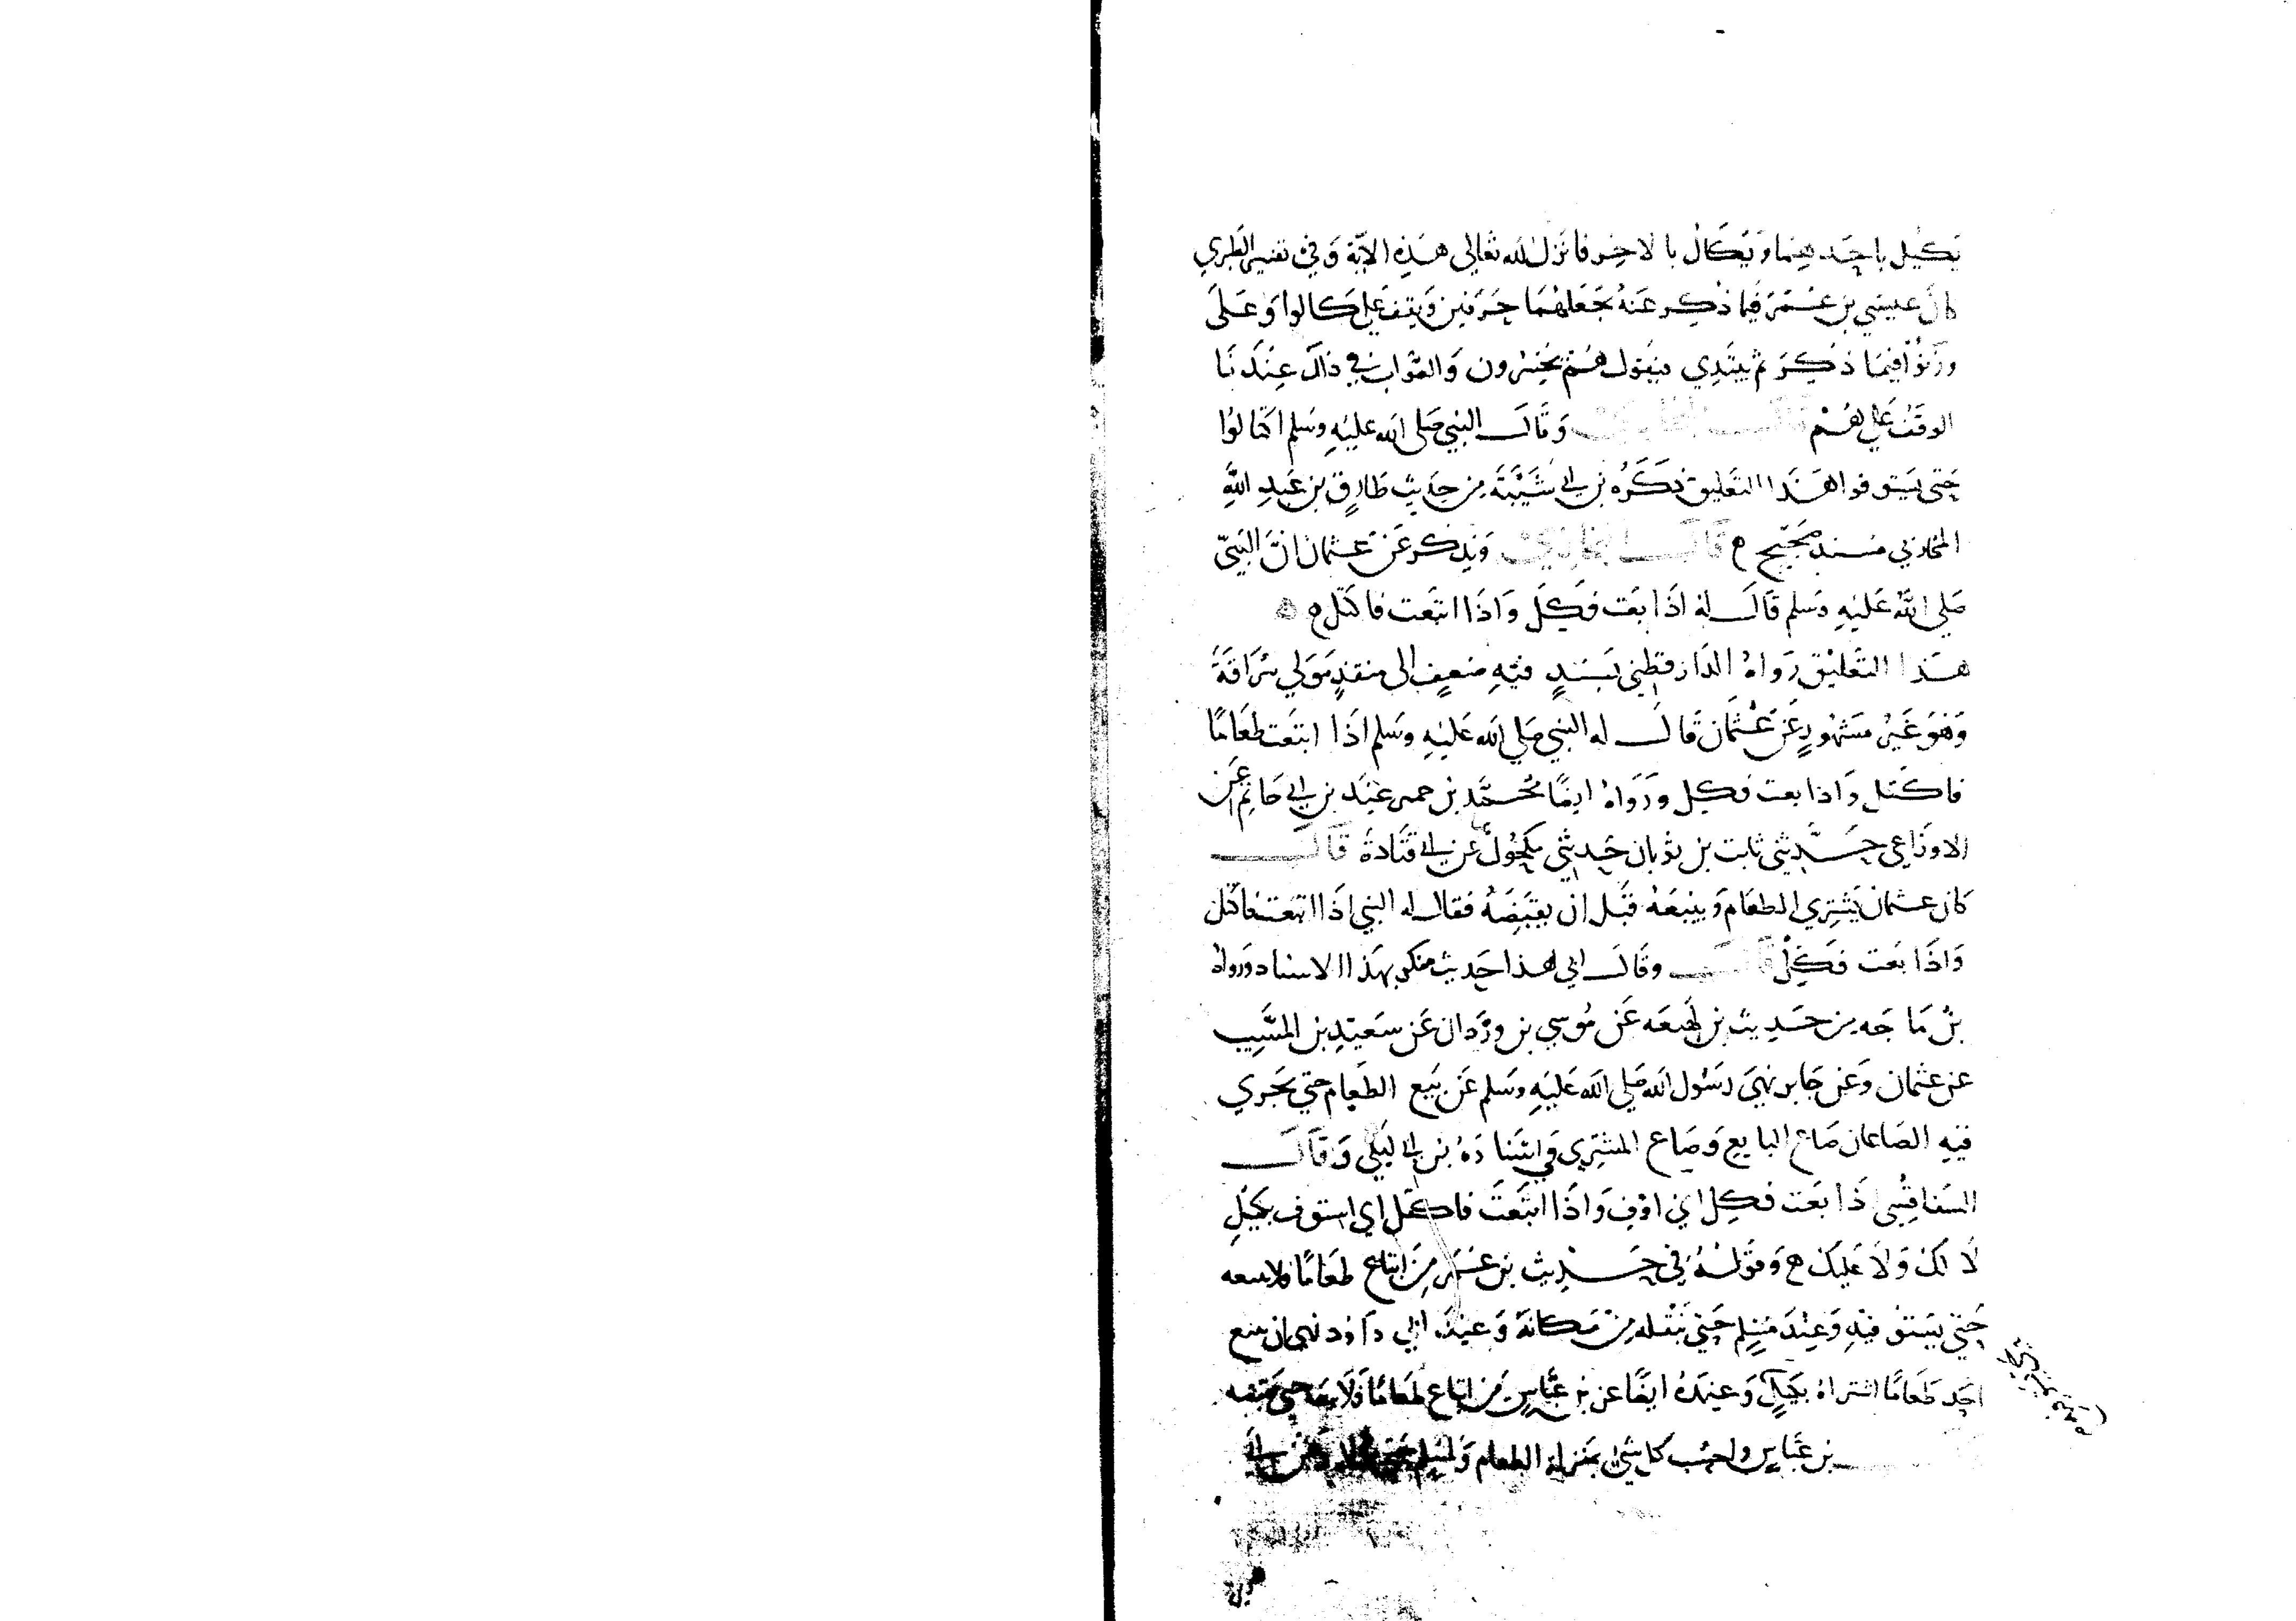 يكيل باحدهما ويكتال بالاخر فانزل الله تعالى هذه الاية وفي تفسير الطبري
كان عيسي بن عمر فيما ذكر عنه يجعلهما حرفين ويقف علي كالوا وعلى
وزنوا فيما ذكر ثم يبتدي فيقول هم يخسرون والصواب في ذلك عندنا
الوقف علي هم وقال النبي صلى الله عليه وسلم اكتالوا
حتى يستوفوا هذا التعليق ذكره بن ابي شيبة من حديث طارق بن عبد الله
المحاربي بسند صحيح قال البخاري ويذكر عن عثمان ان النبي
صلى الله عليه وسلم قال له اذا بعت فكل واذا ابتعت فاكتل
هذا التعليق رواه الدارقطني بسند فيه ضعيف الى منقذ مولي سراقة
وهو غير مشهور عن عثمان قال له النبي صلى الله عليه وسلم اذا ابتعت طعاما
فاكتل واذا بعت فكيل ورواه ايضا محمد بن حمير عند بن ابي حاتم عن
الاوزاعي حدثني ثابت بن ثوبان حدثني مكحول عن ابي قتادة قال
كان عثمان يشتري الطعام ويبيعه قبل ان يقبضه فقال له النبي اذا ابتعت فاكتل
واذا بعت فكل قال وقال ابي هذا حديث منكر بهذا الاسناد ورواه
بن ماجه من حديث بن لهيعه عن موسي بن وردان عن سعيد بن المسيب
عن عثمان وعن جابر نهي رسول الله صلى الله عليه وسلم عن بيع الطعام حتى يجري
فيه الصاعان صاع البايع وصاع المشتري وفي اسناده بن ابي ليلى وقال
السفاقسي اذا بعت فكل اي اوف واذا ابتعت فاكتل اي استوف بكيل
لا لك ولا عليك وقوله في حديث بن عمر من ابتاع طعاما فلا يبعه
حتى يستوفيه وعند مسلم حتى ينقله من مكانه وعند ابي داود نهى ان يبيع
احد طعاما اشتراه بكيل وعنده ايضا عن بن عباس من ابتاع طعاما فلا يبعه حتى يقبضه
بن عباس واحسب كل شي بمنزلة الطعام ولمسلم